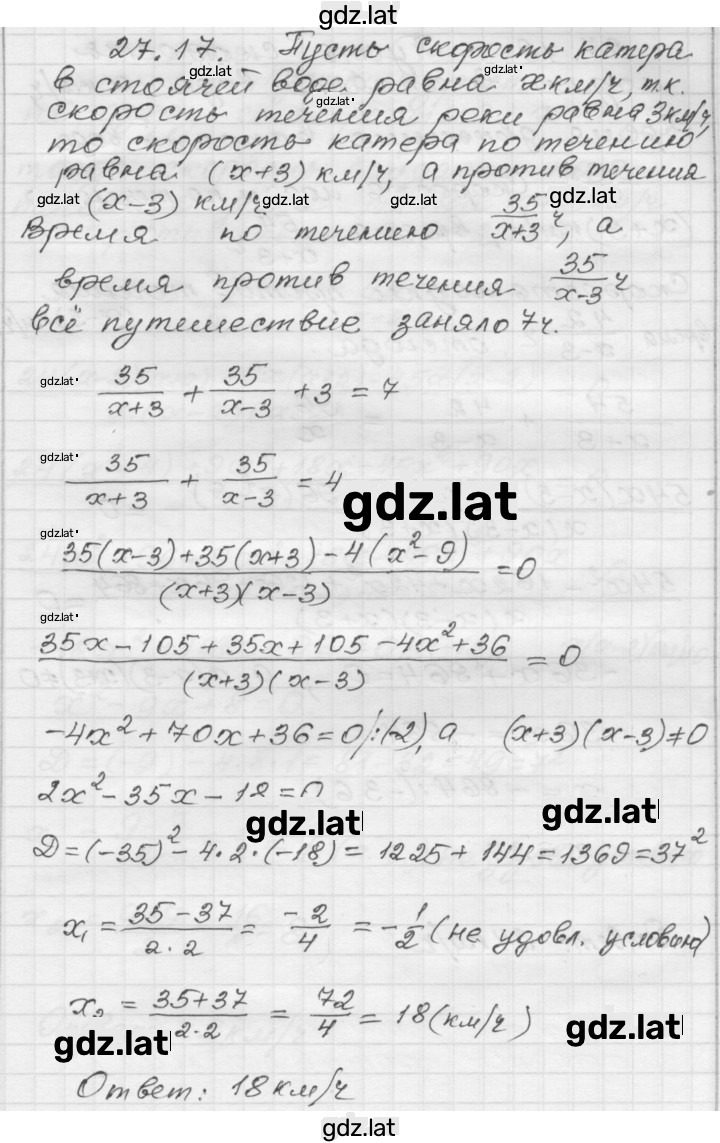 gdz.lat
27.17. Пусть скорость катера
gdz.lat gdz.lat
в стоячей воде равна x км/ч, т.к.
gdz.lat
скорость течения реки равна 3км/ч,
то скорость катера по течению
равна (x+3) км/ч, а против течения
gdz.lat (x-3) км/ч gdz.lat gdz.lat gdz.lat
Время по течению 35/(x+3) ч, а
время против течения 35/(x-3) ч
всё путешествие заняло 7ч.
gdz.lat 35/(x+3) + 35/(x-3) + 3 = 7
gdz.lat 35/(x+3) + 35/(x-3) = 4
gdz.lat
gdz.lat
(35(x-3)+35(x+3)-4(x²-9))/((x+3)(x-3)) = 0
gdz.lat
(35x-105+35x+105-4x²+36)/((x+3)(x-3)) = 0
-4x²+70x+36=0/:(-2), а (x+3)(x-3)≠0
2x²-35x-18=0
gdz.lat gdz.lat
D=(-35)²-4·2·(-18)=1225+144=1369=37²
x₁ = (35-37)/(2·2) = -2/4 = -1/2 (не удовл. условию)
x₂ = (35+37)/(2·2) = 72/4 = 18(км/ч)
gdz.lat gdz.lat
Ответ: 18 км/ч
gdz.lat